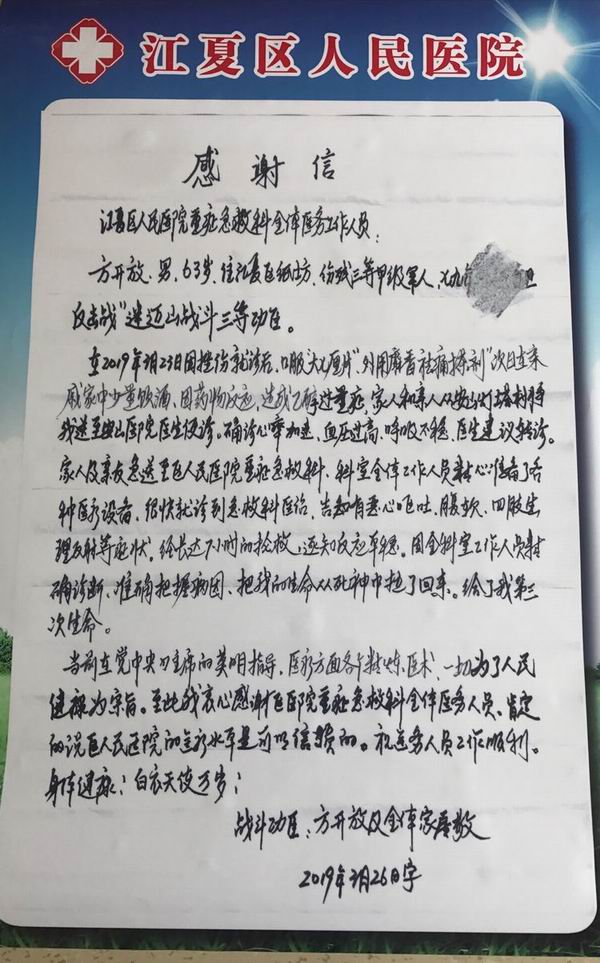 江夏区人民医院
感谢信
江夏区人民医院重症急救科全体医务工作人员:
方开放、男、63岁、住江夏区纸坊、伤残三等甲级军人、
反击战"速迈山战斗三等功臣。
在2019年2月23日因挫伤就诊后、口服"大七厘片"外用麝香祛痛搽剂"次日在亲
戚家中少量饮酒、因药物反应,造成乙醇过量症、家人和亲人从安山灯塔村将
我送至安山医院医生便诊。确诊心率加速、血压过高、呼吸不稳、医生建议转诊。
家人及亲友急送至区人民医院重症急救科、科室全体工作人员精心准备了各
种医疗设备、很快就诊到急救科医治、告知有恶心呕吐、腹软、四肢生
理反射等症状。经长达 小时的抢救、返知反应平稳。因全科室工作人员精
确诊断、准确把握病因、把我的生命从死神中抢了回来。给了我第二
次生命。
当前在党中央习主席的英明指导、医疗方面各个精炼医术、一切为了人民
健康为宗旨。至此我衷心感谢区医院重症急救科全体医务人员、肯定
的说区人民医院的医疗水平是可以信赖的。祝医务人员工作顺利。
身体健康!白衣天使万岁!
战斗功臣:方开放及全体家属敬
2019年2月26日字